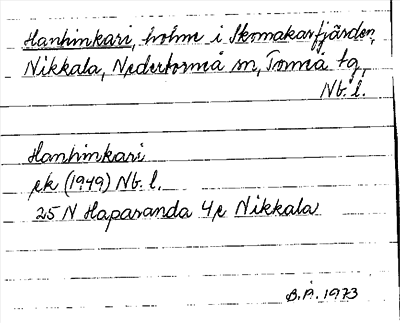 Hanhinkari, holme i Skomakarfjärden,
Nikkala, Nedertorneå sn, Torneå tg,
Nb. l.
Hanhinkari
ek (1949) Nb. l.
25 N Haparanda 4 e Nikkala
B. P. 1973